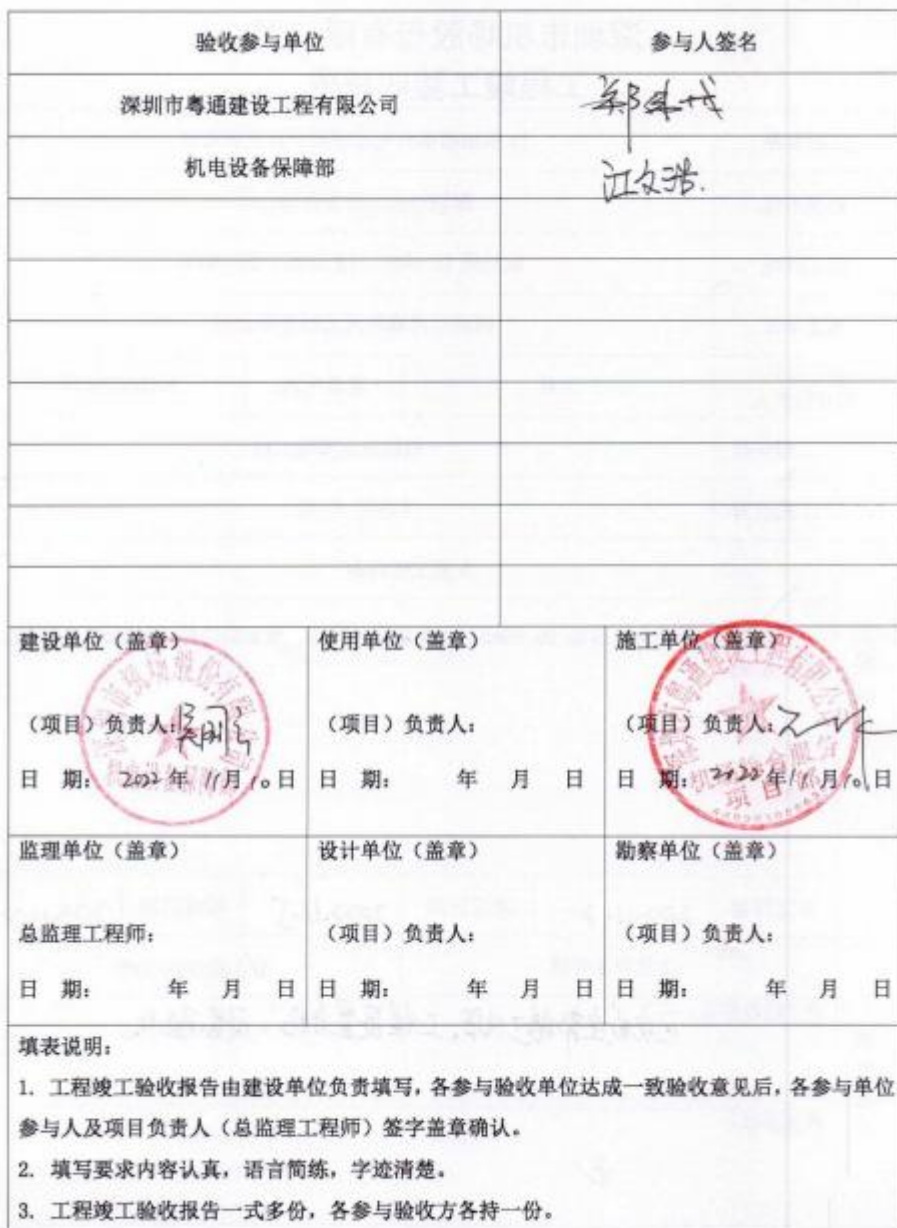 验收参与单位 参与人签名
深圳市粤通建设工程有限公司
机电设备保障部 江文浩.
建设单位（盖章） 使用单位（盖章） 施工单位（盖章）
（项目）负责人： （项目）负责人： （项目）负责人：
日 期： 2022年11月10日 日 期： 年 月 日 日 期： 2022年11月10日
监理单位（盖章） 设计单位（盖章） 勘察单位（盖章）
总监理工程师： （项目）负责人： （项目）负责人：
日 期： 年 月 日 日 期： 年 月 日 日 期： 年 月 日
填表说明：
1. 工程竣工验收报告由建设单位负责填写，各参与验收单位达成一致验收意见后，各参与单位
参与人及项目负责人（总监理工程师）签字盖章确认。
2. 填写要求内容认真，语言简练，字迹清楚。
3. 工程竣工验收报告一式多份，各参与验收方各持一份。